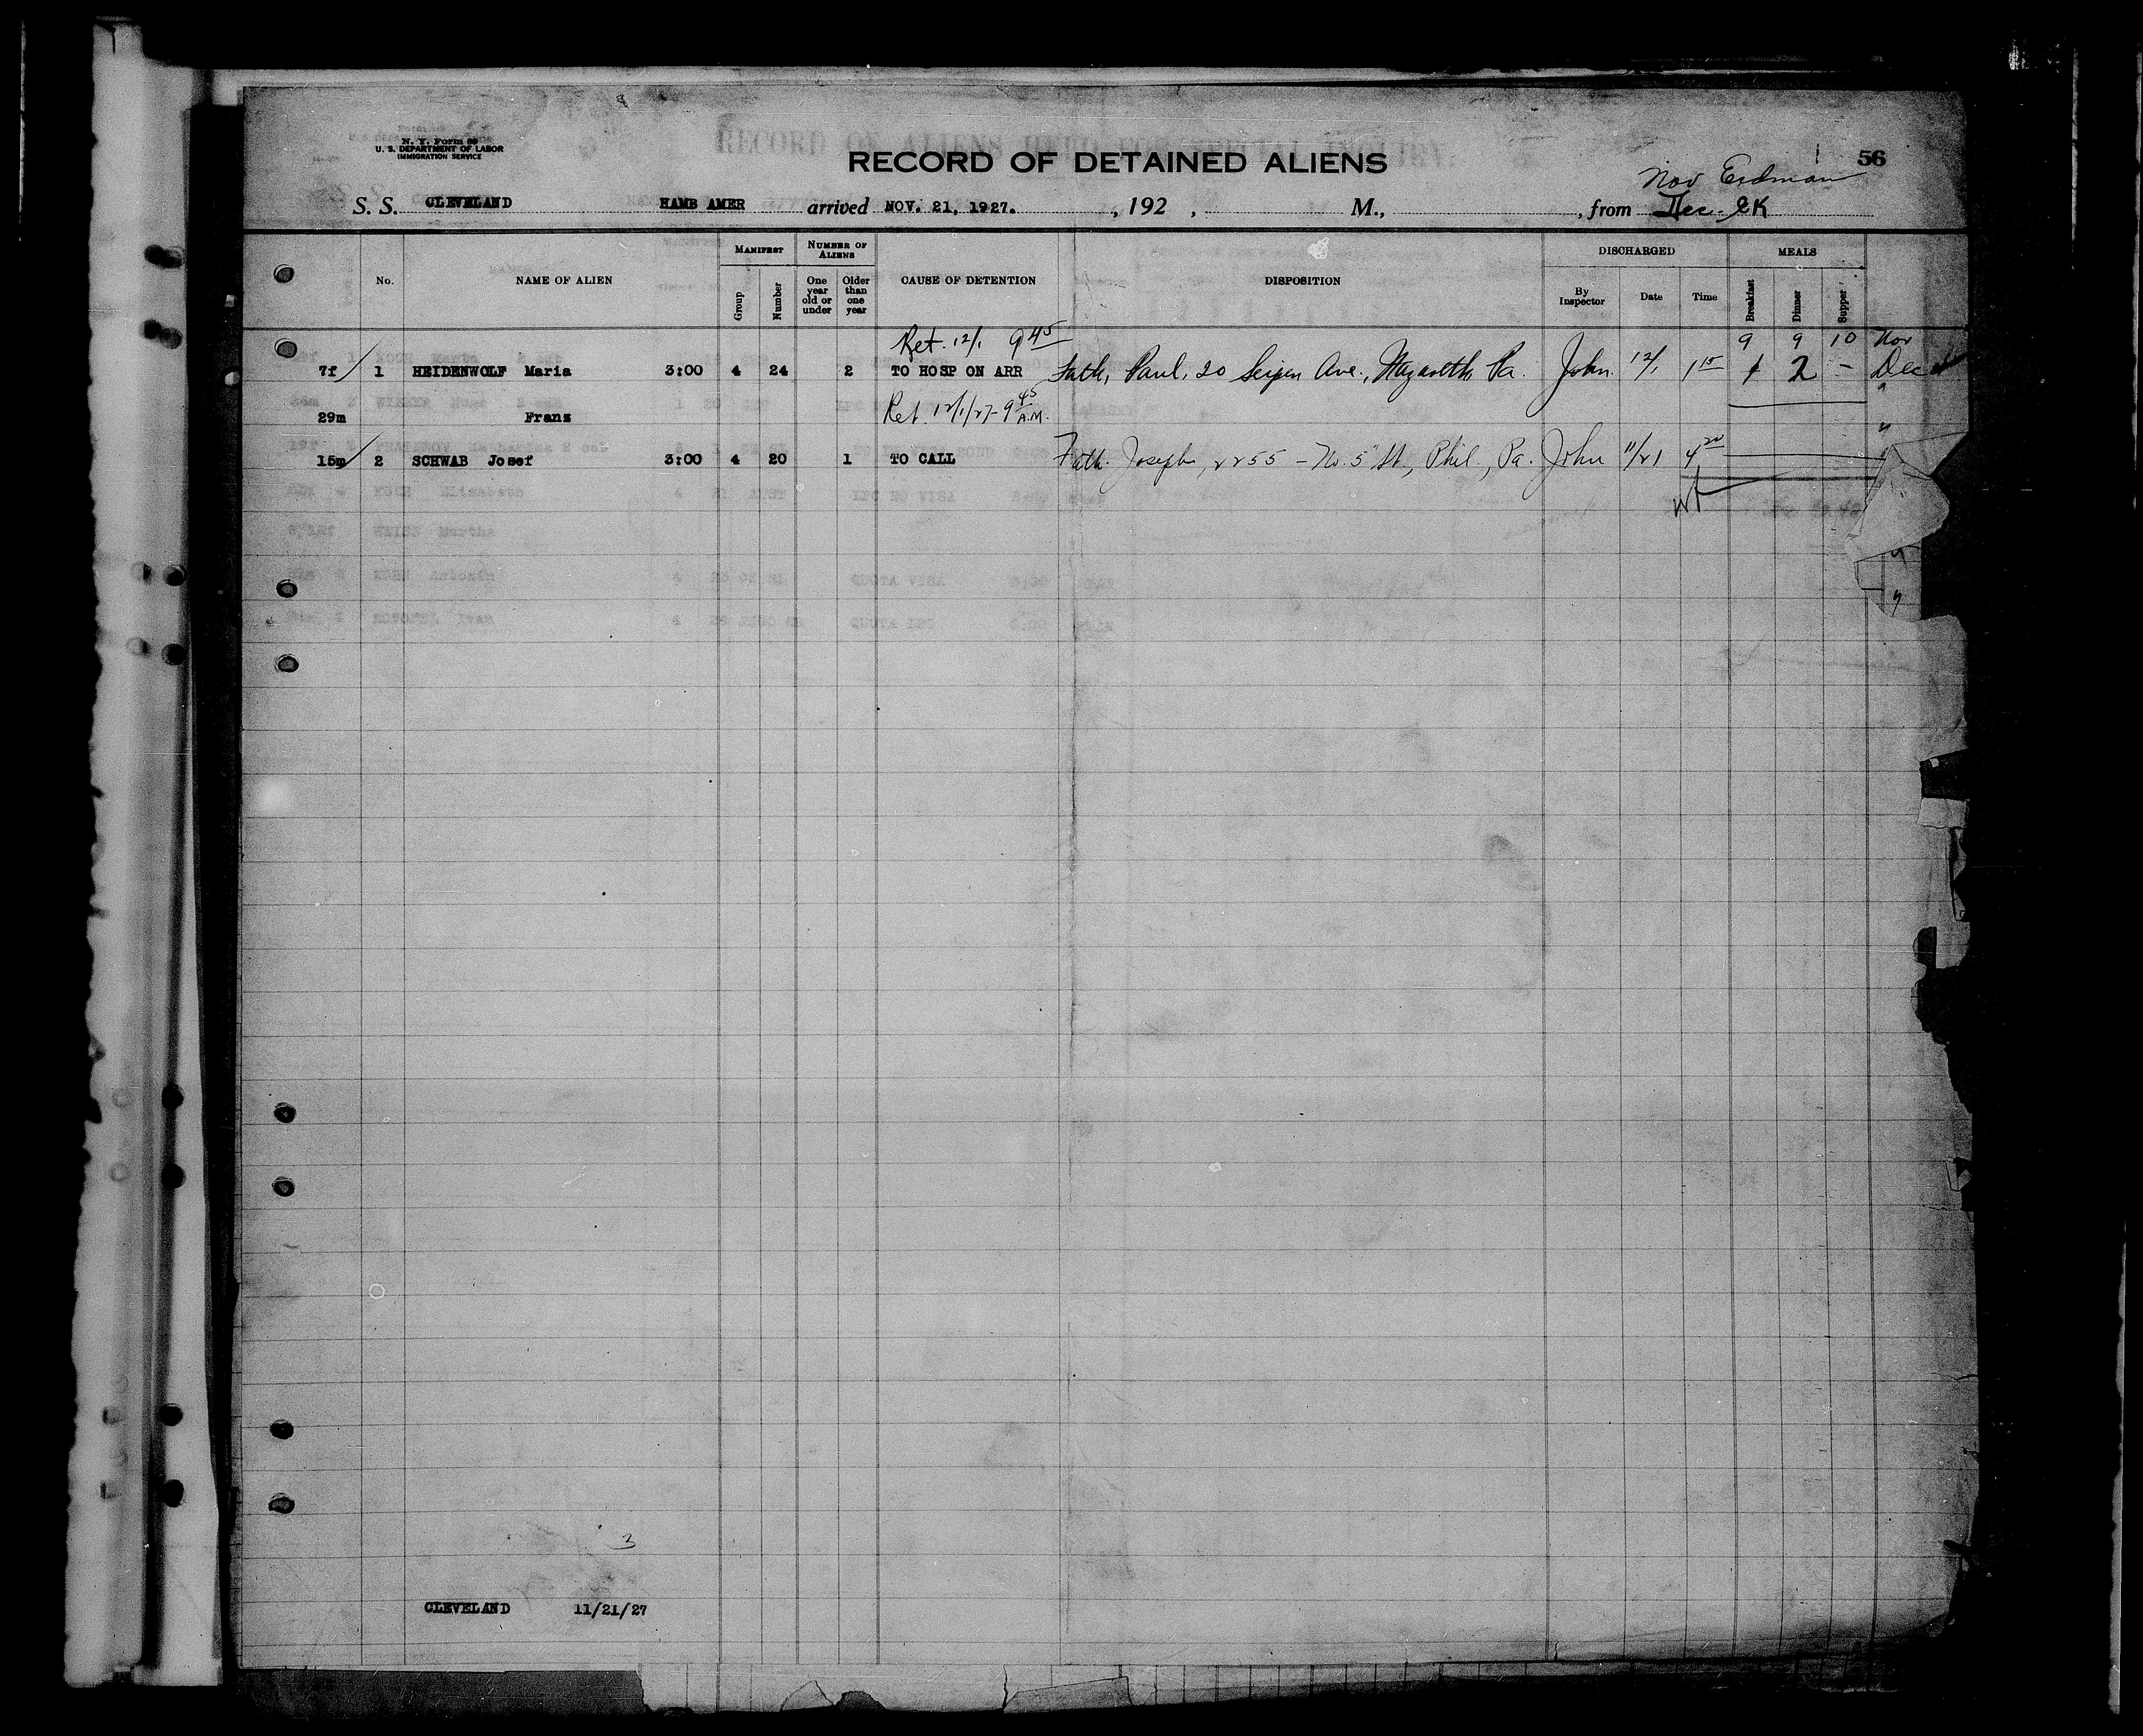 N. Y. Form
U. S. DEPARTMENT OF LABOR
IMMIGRATION SERVICE
RECORD OF DETAINED ALIENS
56
Nov Erdman
S. S. CLEVELAND HAMB AMER arrived NOV. 21, 1927. , 192 , M., , from Dec. EK
No.
NAME OF ALIEN
MANIFEST
Group
Number
NUMBER OF ALIENS
One year old or under
Older than one year
CAUSE OF DETENTION
DISPOSITION
DISCHARGED
By Inspector
Date
Time
MEALS
Breakfast
Dinner
Supper
Ret. 12/1 9 45 9 9 10 Nov
7f 1 HEIDENWOLF Maria 3:00 4 24 2 TO HOSP ON ARR Fath, Paul, 20 Ave., Nazareth, Pa. John. 12/1 1 15 1 2 - Dec
29m Franz Ret. 12/1/27 - 9 45 A.M.
15m 2 SCHWAB Josef 3:00 4 20 1 TO CALL Fath. Joseph, 2255 - No. 5" St., Phil., Pa. John 11/21 4 20
3
CLEVELAND 11/21/27